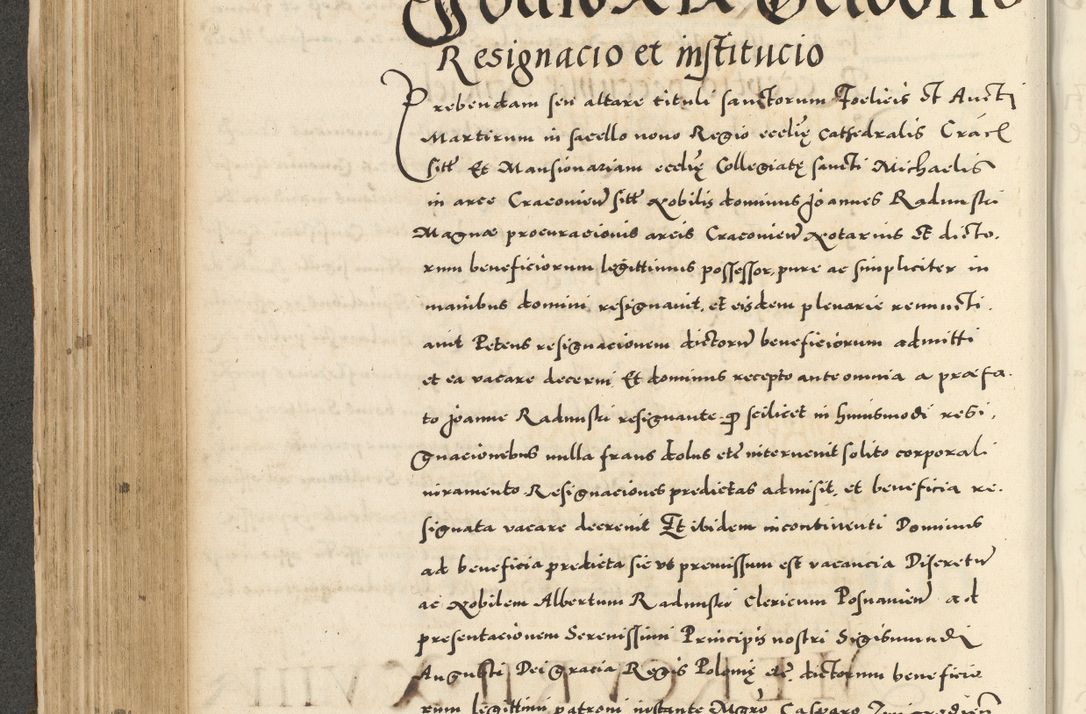 Resignacio et institucio
Prebendam seu altare tituli sanctorum Foelicis et Aucti
Martirum in sacello novo Regio ecclię cathedralis Crac̄
sitt̄ Et Mansionariam ecclię Collegiatę sancti Michaelis
in arce Cracovieñ sitt̄ Nobilis dominus Joannes Radunski
Magnae procuracionis arcis Cracovieñ Notarius et dicto.
rum beneficiorum legittimus possessor, pure ac simpliciter in
manibus domini resignavit, et eisdem plenarie renuncti.
avit Petens resignacionem dictorū beneficiorum admitti
et ea vacare decerni Et dominus recepto ante omnia a praefa.
to Joanne Radunski resignante ꝙ scilicet in huiusmodi resi.
gnacionebus nulla fraus dolus etc̄ intervenit solito corporali
iuramento Resignaciones predictas admisit, et beneficia re.
signata vacare decrevit Et ibidem incontinenti Dominus
ad beneficia predicta sic ut premissum est vacancia Discretū
ac Nobilem Albertum Radunski Clericum Posnanieñ ad
presentacionem Serenissimi Principis nostri Sigismundi
Augusti Dei gracia Regis Polonię etc̄. dictorum beneficio
rum legittimi patroni instante Mgro Casparo